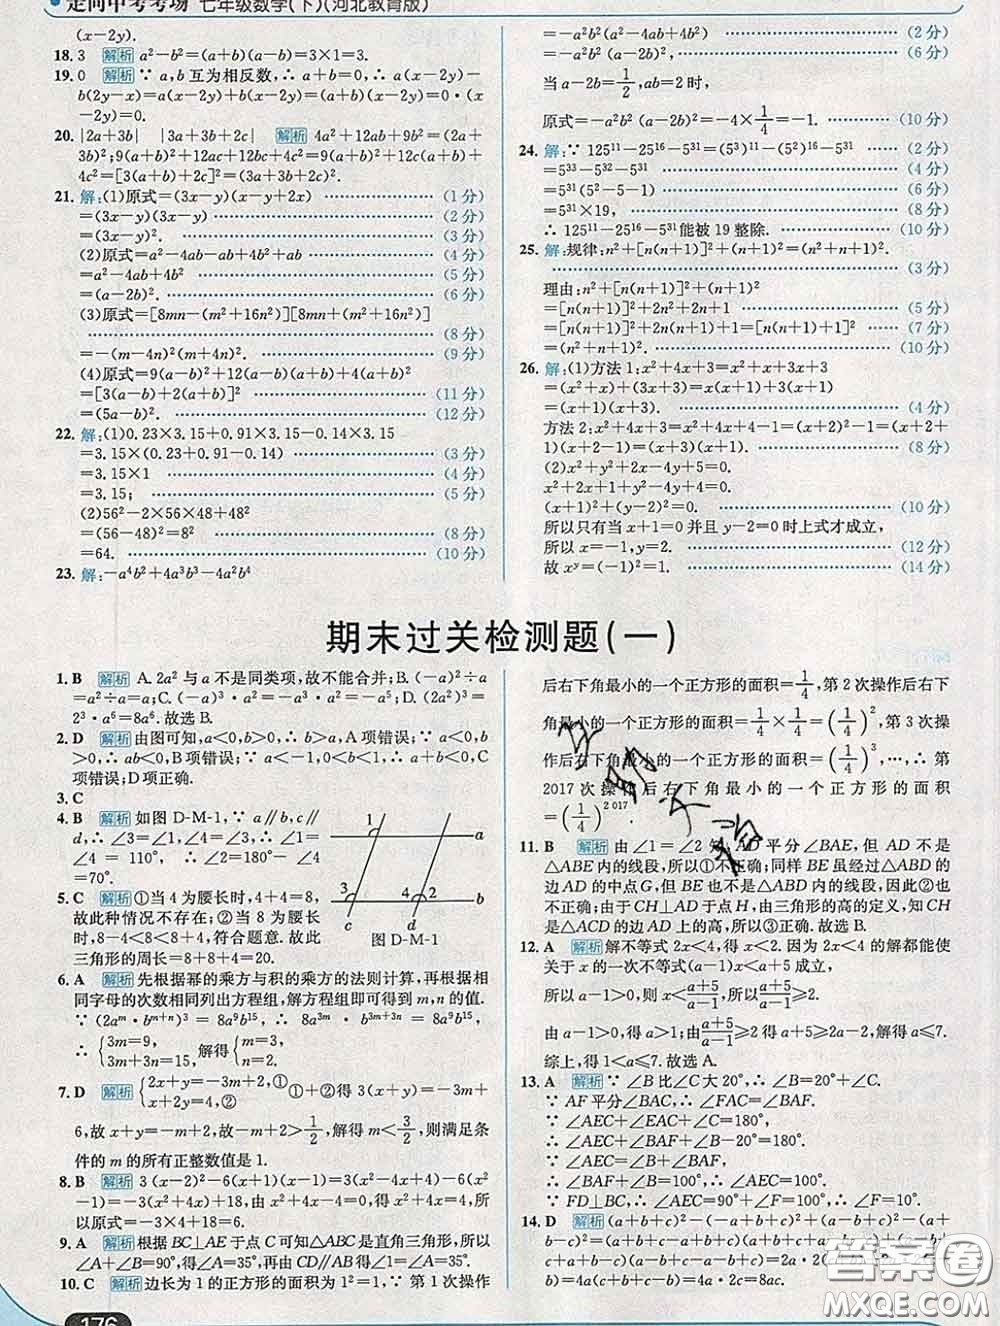 走向中考考场 七年级数学(下)(河北教育版)
(x-2y).
18. 3 解析 a²-b²=(a+b)(a-b)=3×1=3.
19. 0 解析 ∵a,b互为相反数,∴a+b=0,∴a(x-2y)-
b(2y-x)=a(x-2y)+b(x-2y)=(a+b)(x-2y)=0·(x
-2y)=0.
20. |2a+3b| |3a+3b+2c| 解析 4a²+12ab+9b²=(2a+
3b)²;9(a+b)²+12ac+12bc+4c²=9(a+b)²+12c(a+b)+
4c²=[3(a+b)+2c]²=(3a+3b+2c)².
21. 解:(1)原式=(3x-y)(x-y+2x) (1分)
=(3x-y)(3x-y) (2分)
=(3x-y)². (3分)
(2)原式=a²-4ab-ab+4b²+ab (4分)
=a²-4ab+4b² (5分)
=(a-2b)². (6分)
(3)原式=[8mn-(m²+16n²)][8mn+(m²+16n²)]
(8分)
=-(m-4n)²(m+4n)². (9分)
(4)原式=9(a-b)²+12(a-b)(a+b)+4(a+b)²
=[3(a-b)+2(a+b)]² (11分)
=(5a-b)². (12分)
22. 解:(1)0.23×3.15+0.91×3.15-0.14×3.15
=3.15×(0.23+0.91-0.14) (3分)
=3.15×1 (4分)
=3.15; (5分)
(2)56²-2×56×48+48²
=(56-48)²=8² (8分)
=64. (10分)
23. 解:-a⁴b²+4a³b³-4a²b⁴
=-a²b²(a²-4ab+4b²) (2分)
=-a²b²(a-2b)². (6分)
当a-2b=1/2,ab=2时,
原式=-a²b²(a-2b)²=-4×1/4=-1. (10分)
24. 解:∵125¹¹-25¹⁶-5³¹=(5³)¹¹-(5²)¹⁶-5³¹ (2分)
=5³³-5³²-5³¹ (4分)
=5³¹(5²-5-1) (6分)
=5³¹×19, (8分)
∴125¹¹-25¹⁶-5³¹能被19整除. (10分)
25. 解:规律:n²+[n(n+1)]²+(n+1)²=(n²+n+1)².
(3分)
理由:n²+[n(n+1)]²+(n+1)²
=[n(n+1)]²+2n²+2n+1 (5分)
=[n(n+1)]²+2n(n+1)+1=[n(n+1)+1]² (7分)
=(n²+n+1)². (10分)
26. 解:(1)方法1:x²+4x+3=x²+x+3x+3
=(x²+x)+(3x+3)=x(x+1)+3(x+1)
=(x+1)(x+3). (4分)
方法2:x²+4x+3=x²+4x+4-1=(x+2)²-1=(x+2+
1)(x+2-1)=(x+3)(x+1). (8分)
(2)x²+y²+2x-4y+5=0.
x²+2x+1+y²-4y+4=0.
(x+1)²+(y-2)²=0. (10分)
所以只有当x+1=0并且y-2=0时上式才成立,
所以x=-1,y=2. (12分)
故xʸ=(-1)²=1. (14分)
期末过关检测题(一)
1. B 解析 A.2a²与a不是同类项,故不能合并;B.(-a)²÷a
=a²÷a=a;C.(-a)³·a²=-a³·a²=-a⁵;D.(2a²)³=
2³·a⁶=8a⁶.故选B.
2. D 解析 由图可知,a<0,b>0,∴b>a,A项错误;∵a<0,b
>0,∴ab<0,B项错误;∵a<-1,0<b<1,∴a+b<0,C
项错误;D项正确.
3. C
4. B 解析 如图D-M-1,∵a∥b,c∥
d,∴∠3=∠1,∠4=∠3,∴∠1=
∠4=110°,∴∠2=180°-∠4
=70°.
1 a
3 4 2 b
c d
图D-M-1
5. C 解析 ①当4为腰长时,4+4=8,
故此种情况不存在;②当8为腰长
时,8-4<8<8+4,符合题意.故此
三角形的周长=8+8+4=20.
6. A 解析 先根据幂的乘方与积的乘方的法则计算,再根据相
同字母的次数相同列出方程组,解方程组即可得到m,n的值.
∵(2aᵐ·bᵐ⁺ⁿ)³=8a⁹b¹⁵,∴8a³ᵐ·b³ᵐ⁺³ⁿ=8a⁹b¹⁵,
∴{3m=9, 3m+3n=15, 解得{m=3, n=2.
7. D 解析 {2x+y=-3m+2,① x+2y=4,② ①+②得3(x+y)=-3m+
6,故x+y=-m+2,故-m+2>1/2,解得m<3/2,则满足条
件的m的所有正整数值是1.
8. B 解析 3(x-2)²-6(x+1)(x-1)=3(x²-4x+4)-6(x²
-1)=-3(x²+4x)+18,由x²+4x-4=0,得x²+4x=4,所
以原式=-3×4+18=6.
9. A 解析 根据BC⊥AE于点C可知△ABC是直角三角形,所以
∠A+∠B=90°,得∠A=35°,再由CD∥AB得∠1=∠A=35°.
10. C 解析 边长为1的正方形的面积为1²=1,∵第1次操作
后右下角最小的一个正方形的面积=1/4,第2次操作后右下
角最小的一个正方形的面积=1/4×1/4=(1/4)²,第3次操
作后右下角最小的一个正方形的面积=(1/4)³,…,∴第
2017次操作后右下角最小的一个正方形的面积
=(1/4)²⁰¹⁷.
11. B 解析 由∠1=∠2知,AD平分∠BAE,但AD不是
△ABE内的线段,所以①不正确;同样BE虽经过△ABD的
边AD的中点G,但BE也不是△ABD内的线段,因此②也
不正确;由于CH⊥AD于点H,由三角形的高的定义,知CH
是△ACD的边AD上的高,所以③正确.故选B.
12. A 解析 解不等式2x<4,得x<2.因为2x<4的解都能使
关于x的一次不等式(a-1)x<a+5成立,
所以a-1>0,则x<(a+5)/(a-1),所以(a+5)/(a-1)≥2,
由a-1>0得a>1;由(a+5)/(a-1)≥2得a+5≥2a-2,解得a≤7.
综上,得1<a≤7.故选A.
13. A 解析 ∵∠B比∠C大20°,∴∠B=∠C+20°.
∵AF平分∠BAC,∴∠FAC=∠BAF.
∵∠AEC+∠FAC+∠C=180°,
∴∠AEC+∠BAF+∠C=180°,
∵∠AEC=∠B+∠BAF,
∴∠AEC=∠BAF+∠C+20°=100°,
∵FD⊥BC,∴∠AEC=90°+∠F=100°,∴∠F=10°.
14. D 解析 (a+b+c)²-(-a+b+c)²+(a-b+c)²-(a+b-
答案圈
MXQE.COM
176